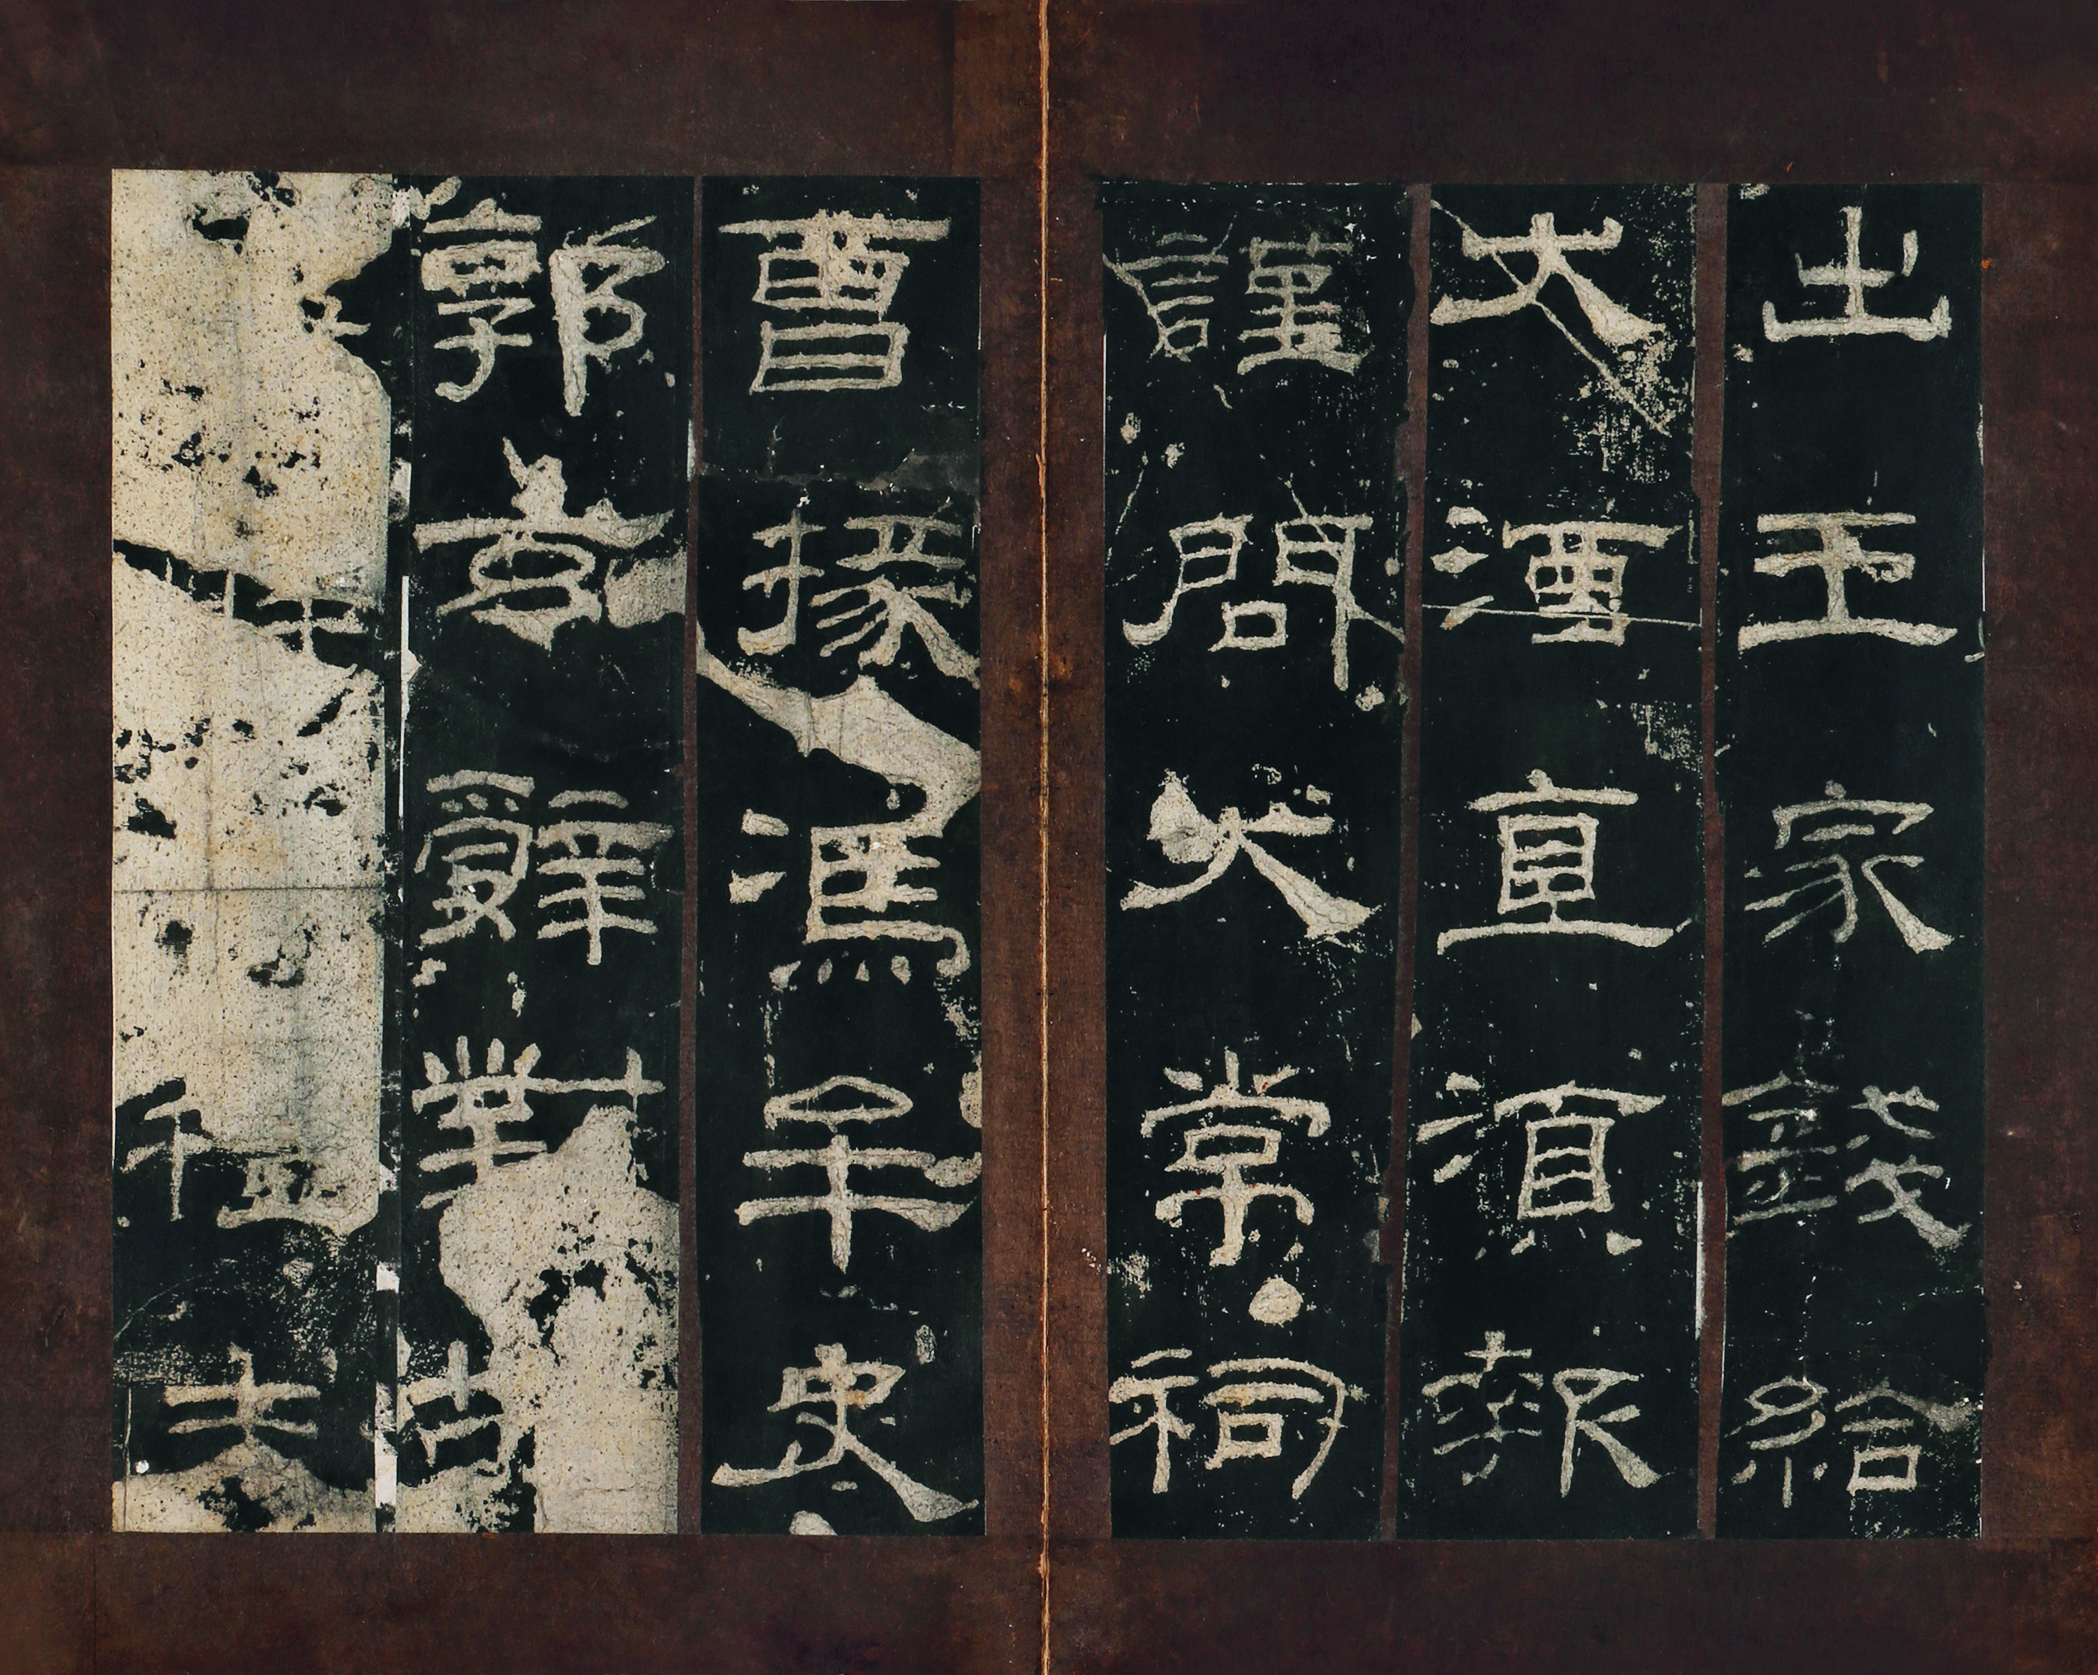 出王家錢給
大酒直須報
謹問大常祠
曹掾馮牟史
郭玄辭對
故